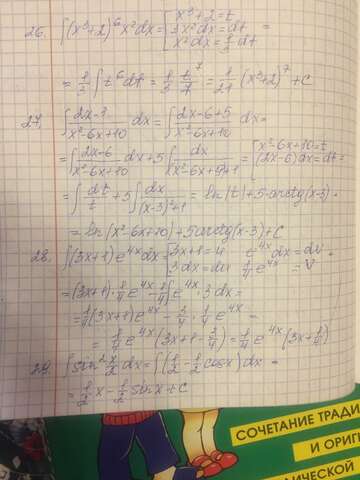 26. ∫(x³+2)⁶x²dx = [x³+2=t
3x²dx=dt
x²dx=⅓dt] =
= ⅓∫t⁶dt = ⅓ t⁷/7 = 1/21 (x³+2)⁷+C
27. ∫(2x-1)/(x²-6x+10) dx = ∫(2x-6+5)/(x²-6x+10) dx =
= ∫(2x-6)/(x²-6x+10) dx + 5∫dx/(x²-6x+9+1) = [x²-6x+10=t
(2x-6)dx=dt] =
= ∫dt/t + 5∫dx/((x-3)²+1) = ln|t|+5·arctg(x-3) =
= ln(x²-6x+10)+5arctg(x-3)+C
28. ∫(3x+1)e⁴ˣdx = [3x+1=u e⁴ˣdx=dv
3dx=du ¼e⁴ˣ=v] =
= (3x+1)·¼e⁴ˣ-¼∫e⁴ˣ·3dx =
= ¼(3x+1)e⁴ˣ - ¾·¼e⁴ˣ =
= ¼e⁴ˣ(3x+1-¾) = ¼e⁴ˣ(3x+¼)
29. ∫sin² x/2 dx = ∫(½-½cosx)dx =
= ½x-½sinx+C
СОЧЕТАНИЕ ТРАДИ
И ОРИГ
ИЧЕСКОЙ